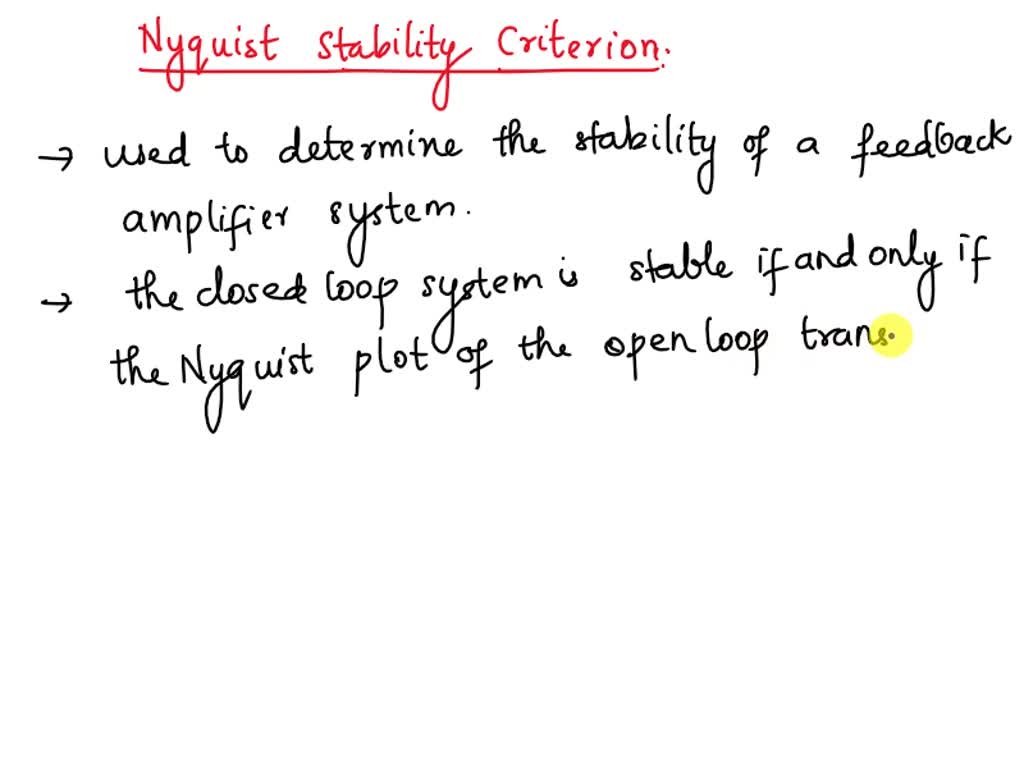 Nyquist Stability Criterion.
→ used to determine the stability of a feedback
amplifier system.
→ the closed loop system is stable if and only if
the Nyquist plot of the open loop trans